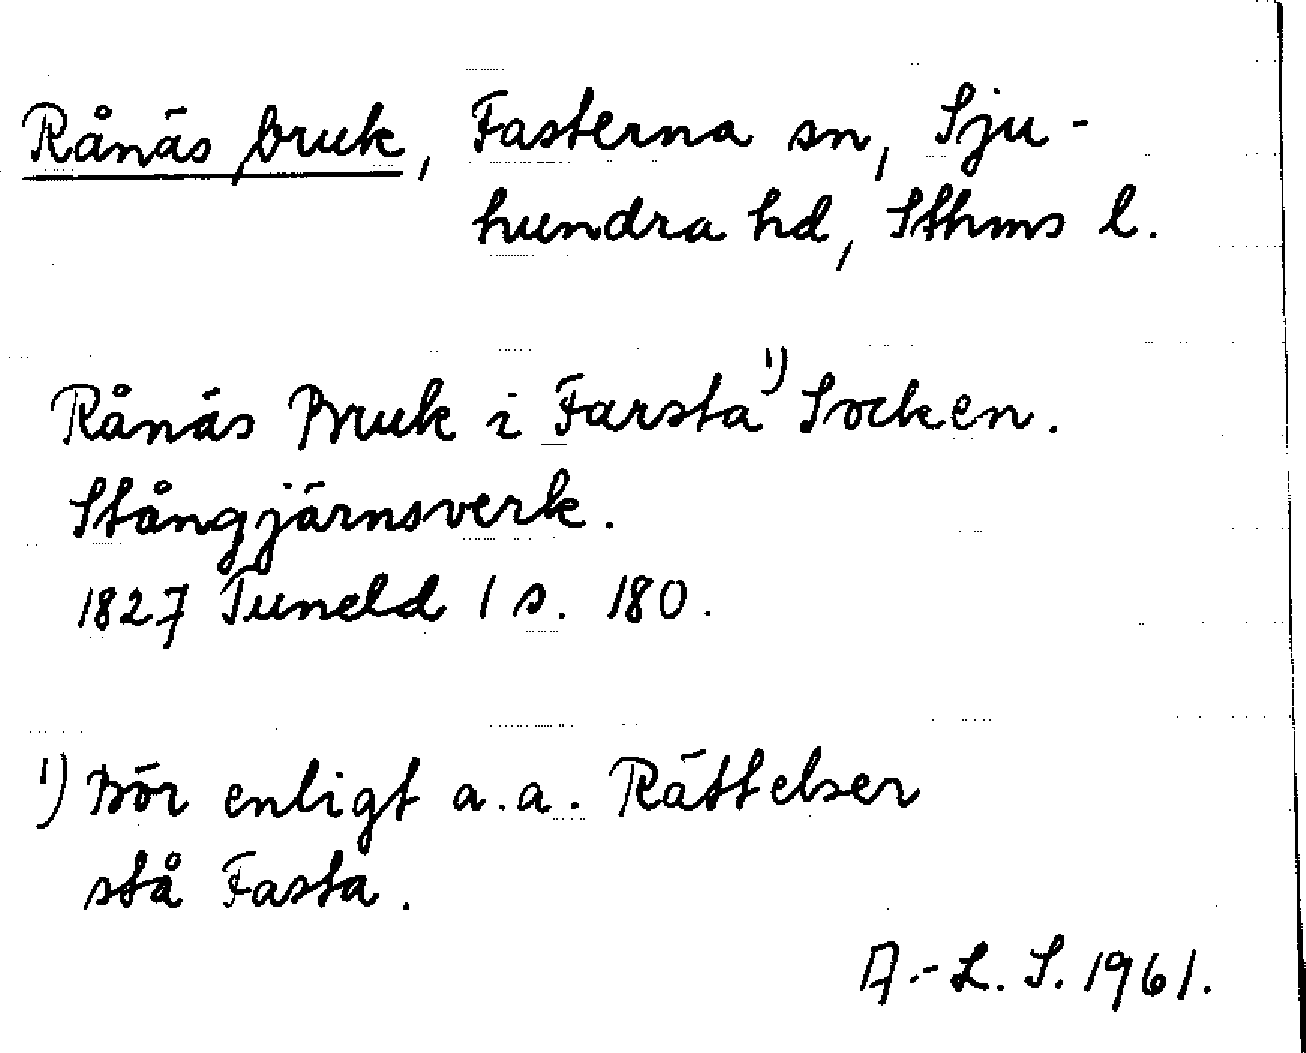 Rånäs bruk, Fasterna sn, Sju-
hundra hd, Sthms l.
Rånäs Bruk i Farsta¹⁾ Socken.
Stångjärnsverk.
1827 Tuneld 1 s. 180.
¹⁾ Bör enligt a.a. Rättelser
stå Fasta.
A.-L. S. 1961.